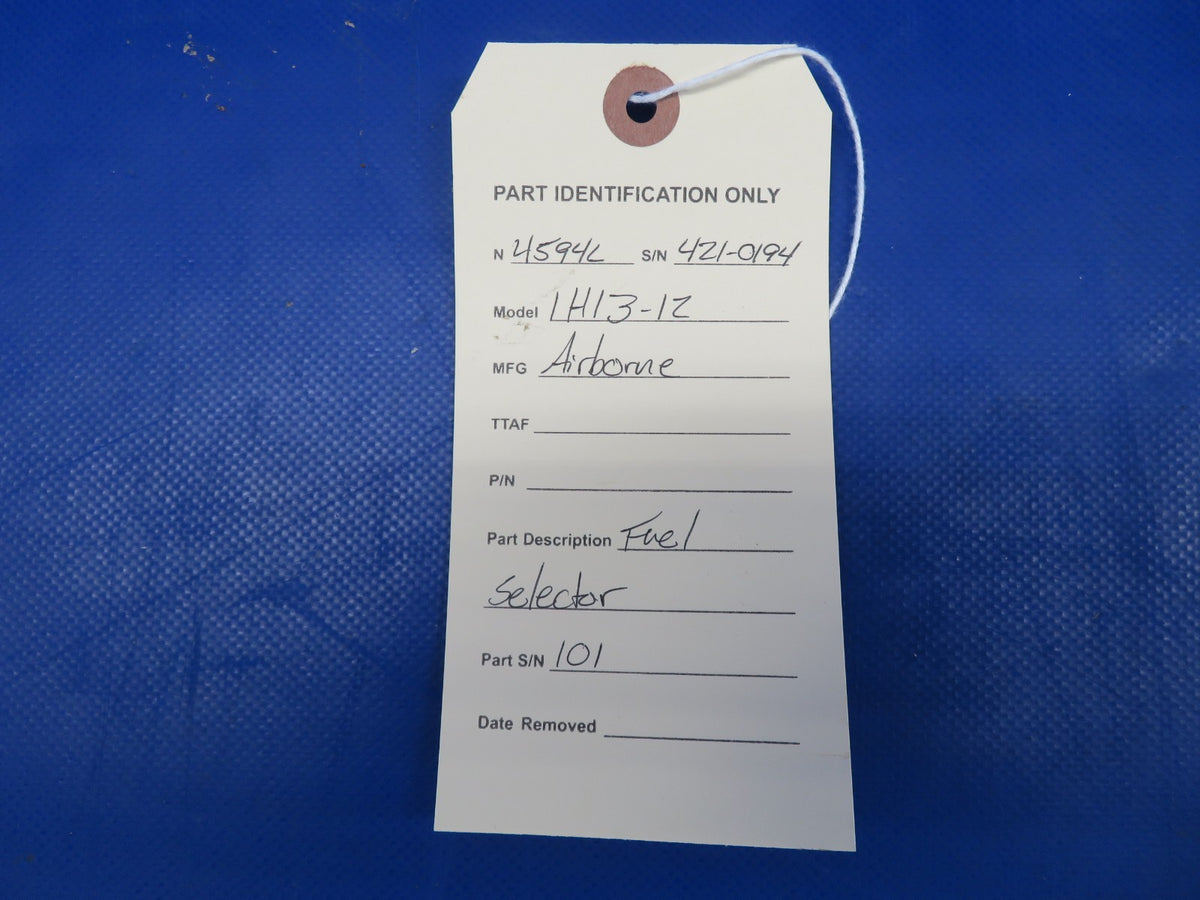 PART IDENTIFICATION ONLY
N 4594L S/N 421-0194
Model 1H13-12
MFG Airborne
TTAF
P/N
Part Description Fuel
Selector
Part S/N 101
Date Removed